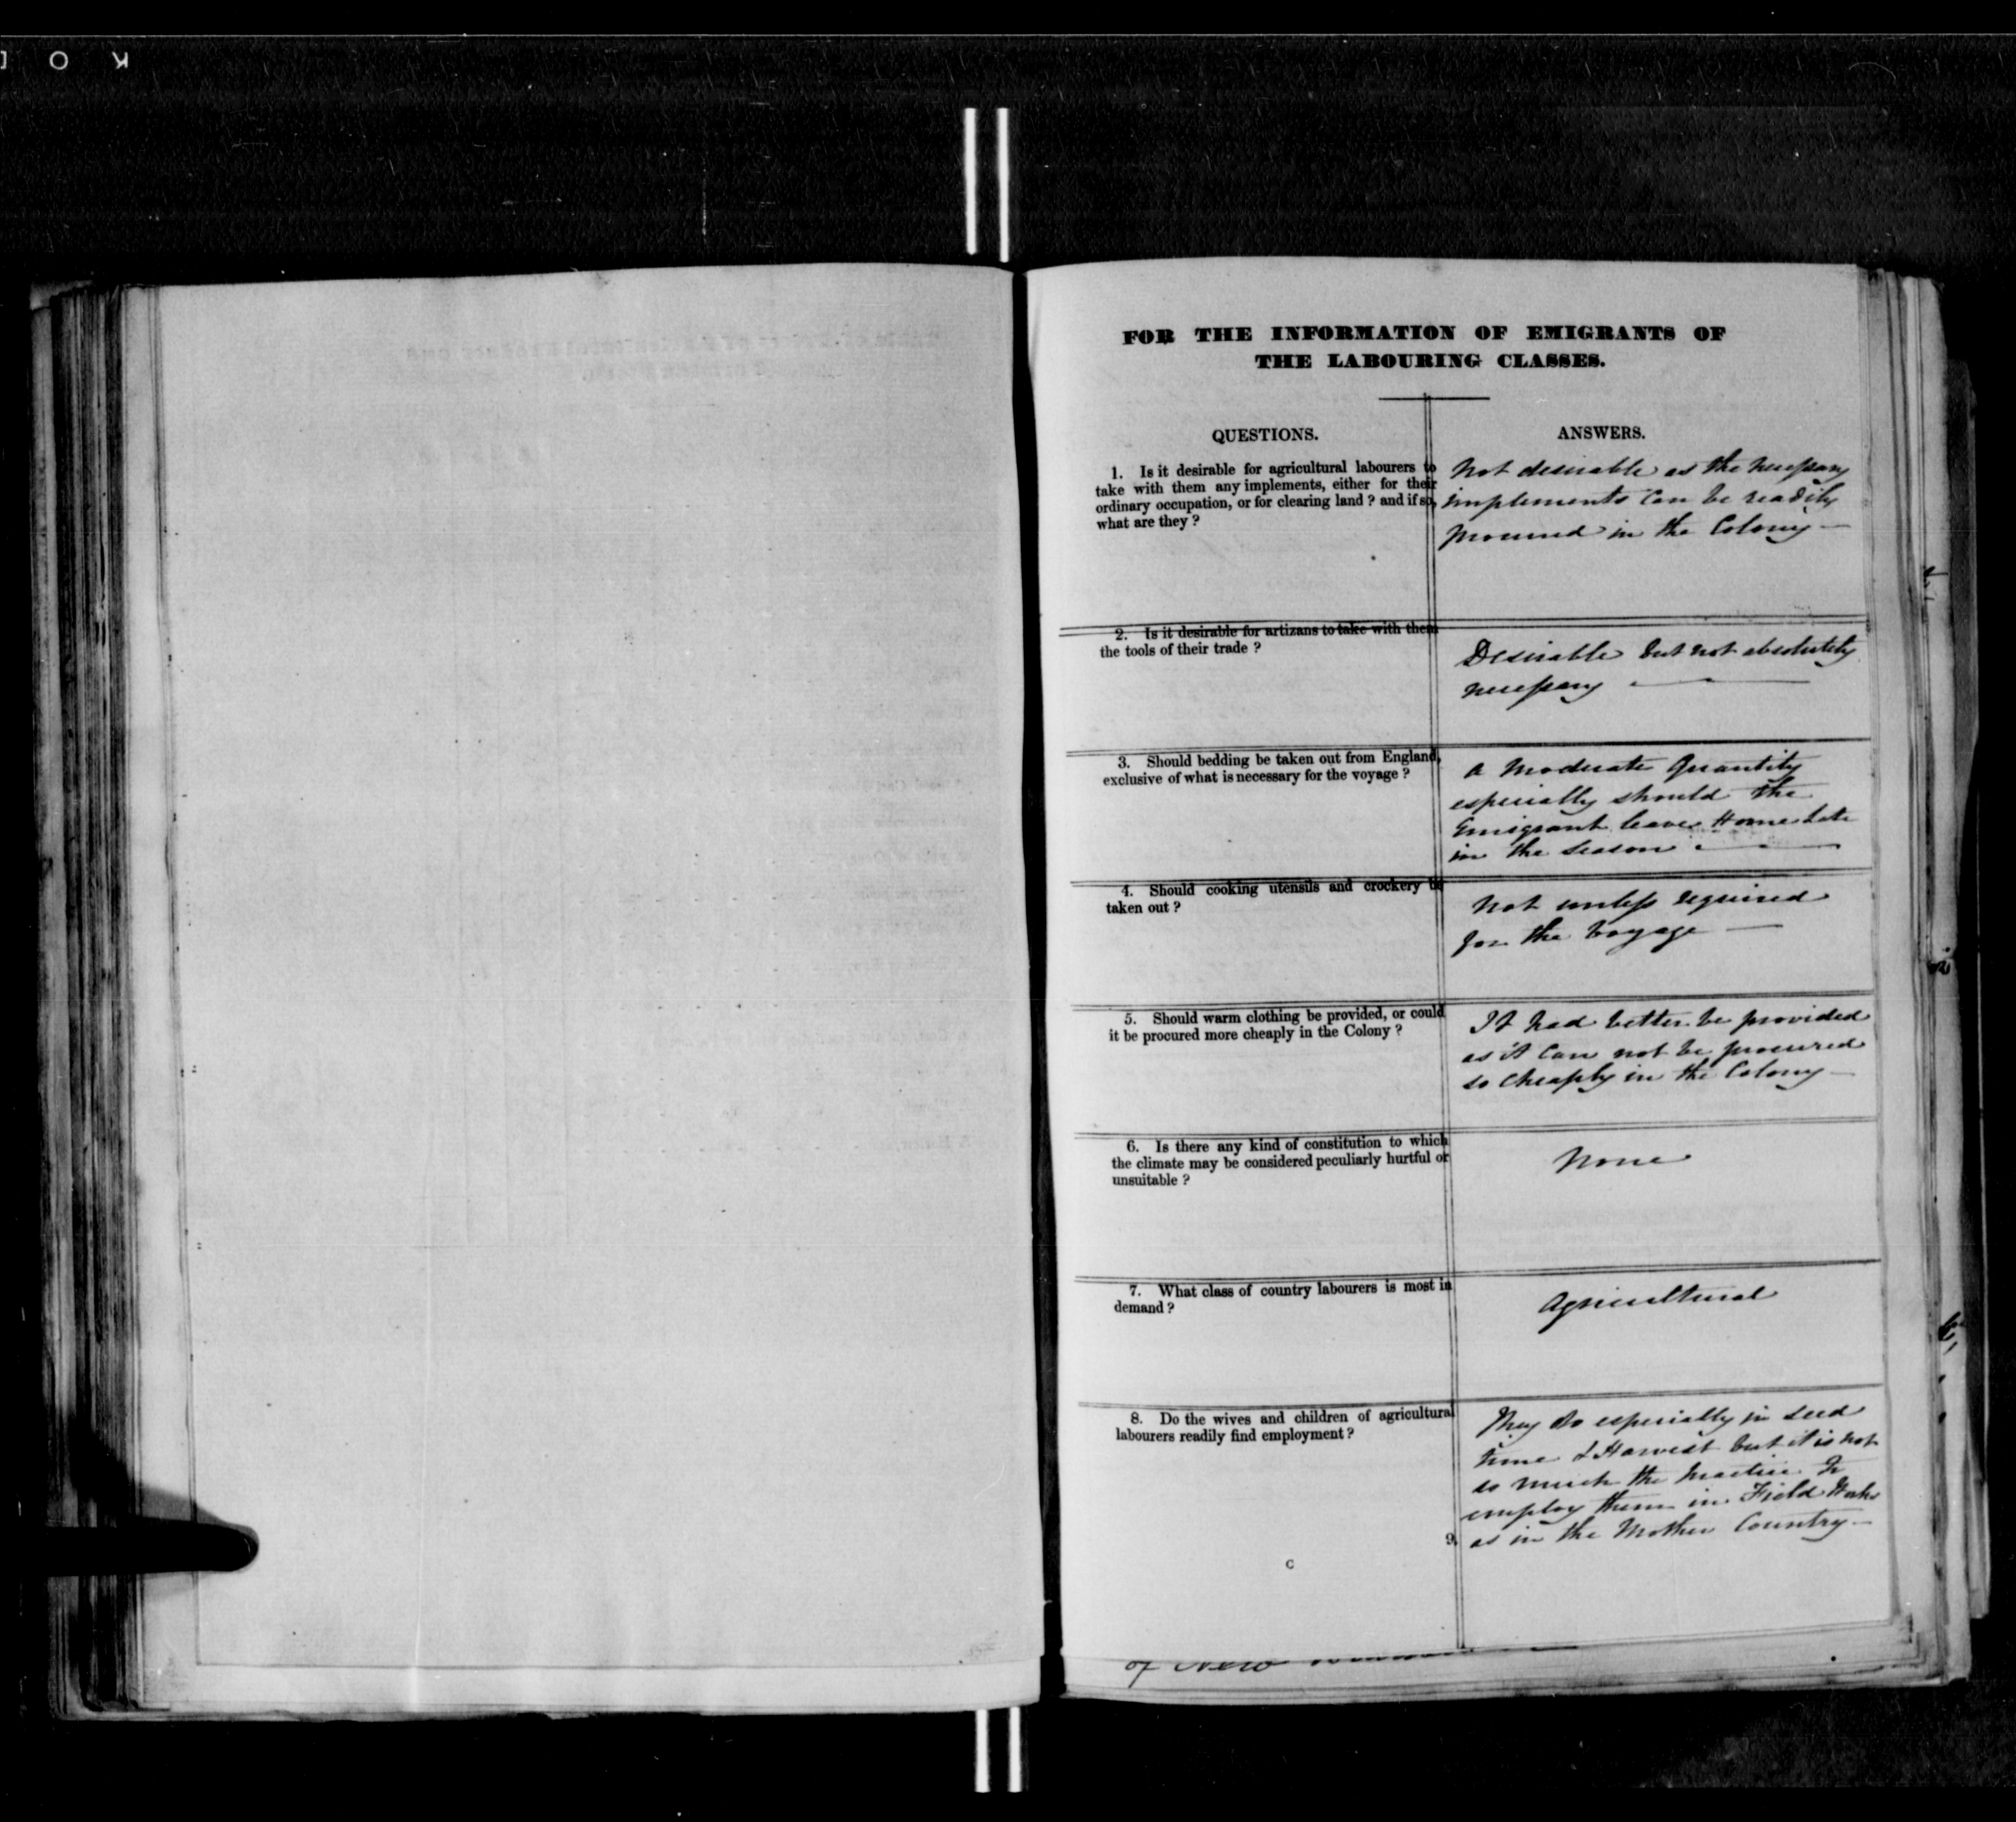 FOR THE INFORMATION OF EMIGRANTS OF
THE LABOURING CLASSES.
QUESTIONS.
ANSWERS.
1. Is it desirable for agricultural labourers to
take with them any implements, either for their
ordinary occupation, or for clearing land ? and if so,
what are they ?
Not desirable as the necessary
implements can be readily
procured in the Colony —
2. Is it desirable for artizans to take with them
the tools of their trade ?
Desirable but not absolutely
necessary —
3. Should bedding be taken out from England,
exclusive of what is necessary for the voyage ?
A Moderate Quantity
especially should the
Emigrant leave Home late
in the Season —
4. Should cooking utensils and crockery be
taken out ?
Not unless required
for the Voyage —
5. Should warm clothing be provided, or could
it be procured more cheaply in the Colony ?
It had better be provided
as it can not be procured
so cheaply in the Colony —
6. Is there any kind of constitution to which
the climate may be considered peculiarly hurtful or
unsuitable ?
None
7. What class of country labourers is most in
demand ?
Agricultural
8. Do the wives and children of agricultural
labourers readily find employment ?
They do especially in seed
time & Harvest but it is not
so much the practice to
employ them in Field Works
as in the Mother Country —
9.
C
of New